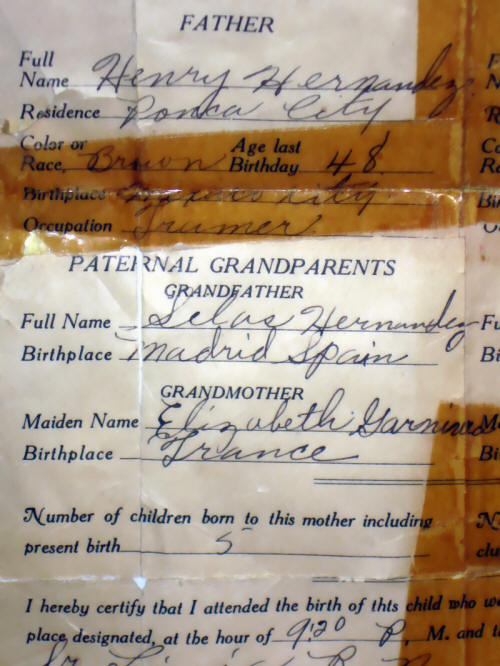 FATHER
Full
Name Henry Hernandez
Residence Ponca City
Color or
Race, Brown Age last
Birthday 48
Birthplace Mexico City
Occupation
PATERNAL GRANDPARENTS
GRANDFATHER
Full Name Selas Hernandez
Birthplace Madrid Spain
GRANDMOTHER
Maiden Name Elizabeth
Birthplace France
Number of children born to this mother including
present birth 5
I hereby certify that I attended the birth of this child who
place designated, at the hour of 9:20 P. M. and